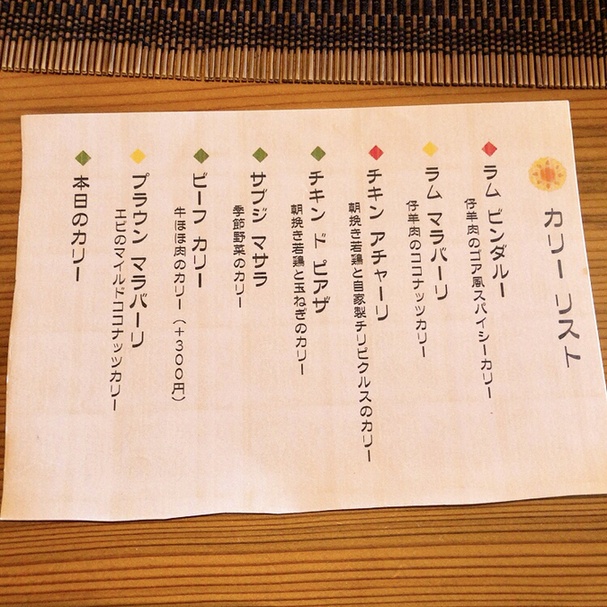 カリー リスト
ラム ビンダルー
仔羊肉のゴア風スパイシーカリー
ラム マラバーリ
仔羊肉のココナッツカリー
チキン アチャーリ
朝挽き若鶏と自家製チリピクルスのカリー
チキン ド ピアザ
朝挽き若鶏と玉ねぎのカリー
サブジ マサラ
季節野菜のカリー
ビーフ カリー
牛ほほ肉のカリー（＋３００円）
プラウン マラバーリ
エビのマイルドココナッツカリー
本日のカリー